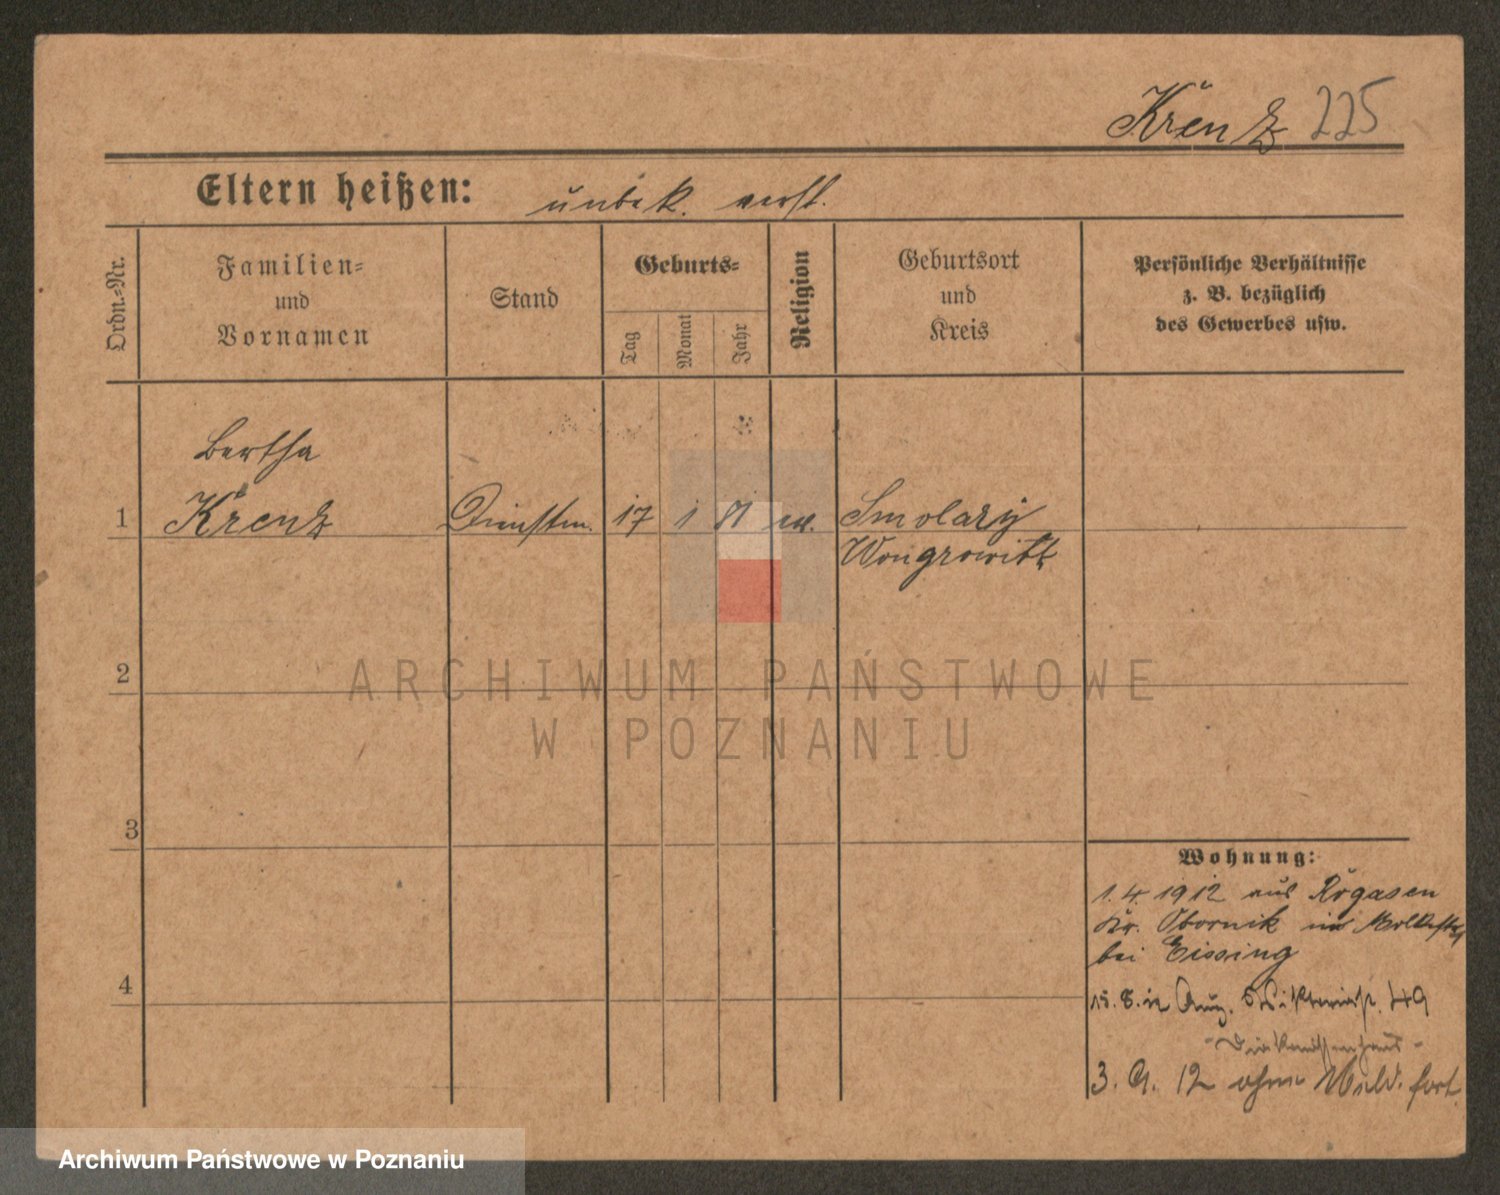 Krenz 225
Eltern heißen: unbek. verst.
Ordn.-Nr.
Familien-
und
Vornamen
Stand
Geburts-
Tag
Monat
Jahr
Religion
Geburtsort
und
Kreis
Persönliche Verhältnisse
z. B. bezüglich
des Gewerbes usw.
Bertha
1 Krenz Dienstm. 17 1 81 ev. Smolary
Wongrowitz
2
3
4
Wohnung:
1.4.1912 aus Rogasen
Kr. Obornik in
bei Eissing
15.8.12 49
- Diakonissenhaus -
3. 9. 12 ohne Meld. fort.
ARCHIWUM PAŃSTWOWE
W POZNANIU
Archiwum Państwowe w Poznaniu